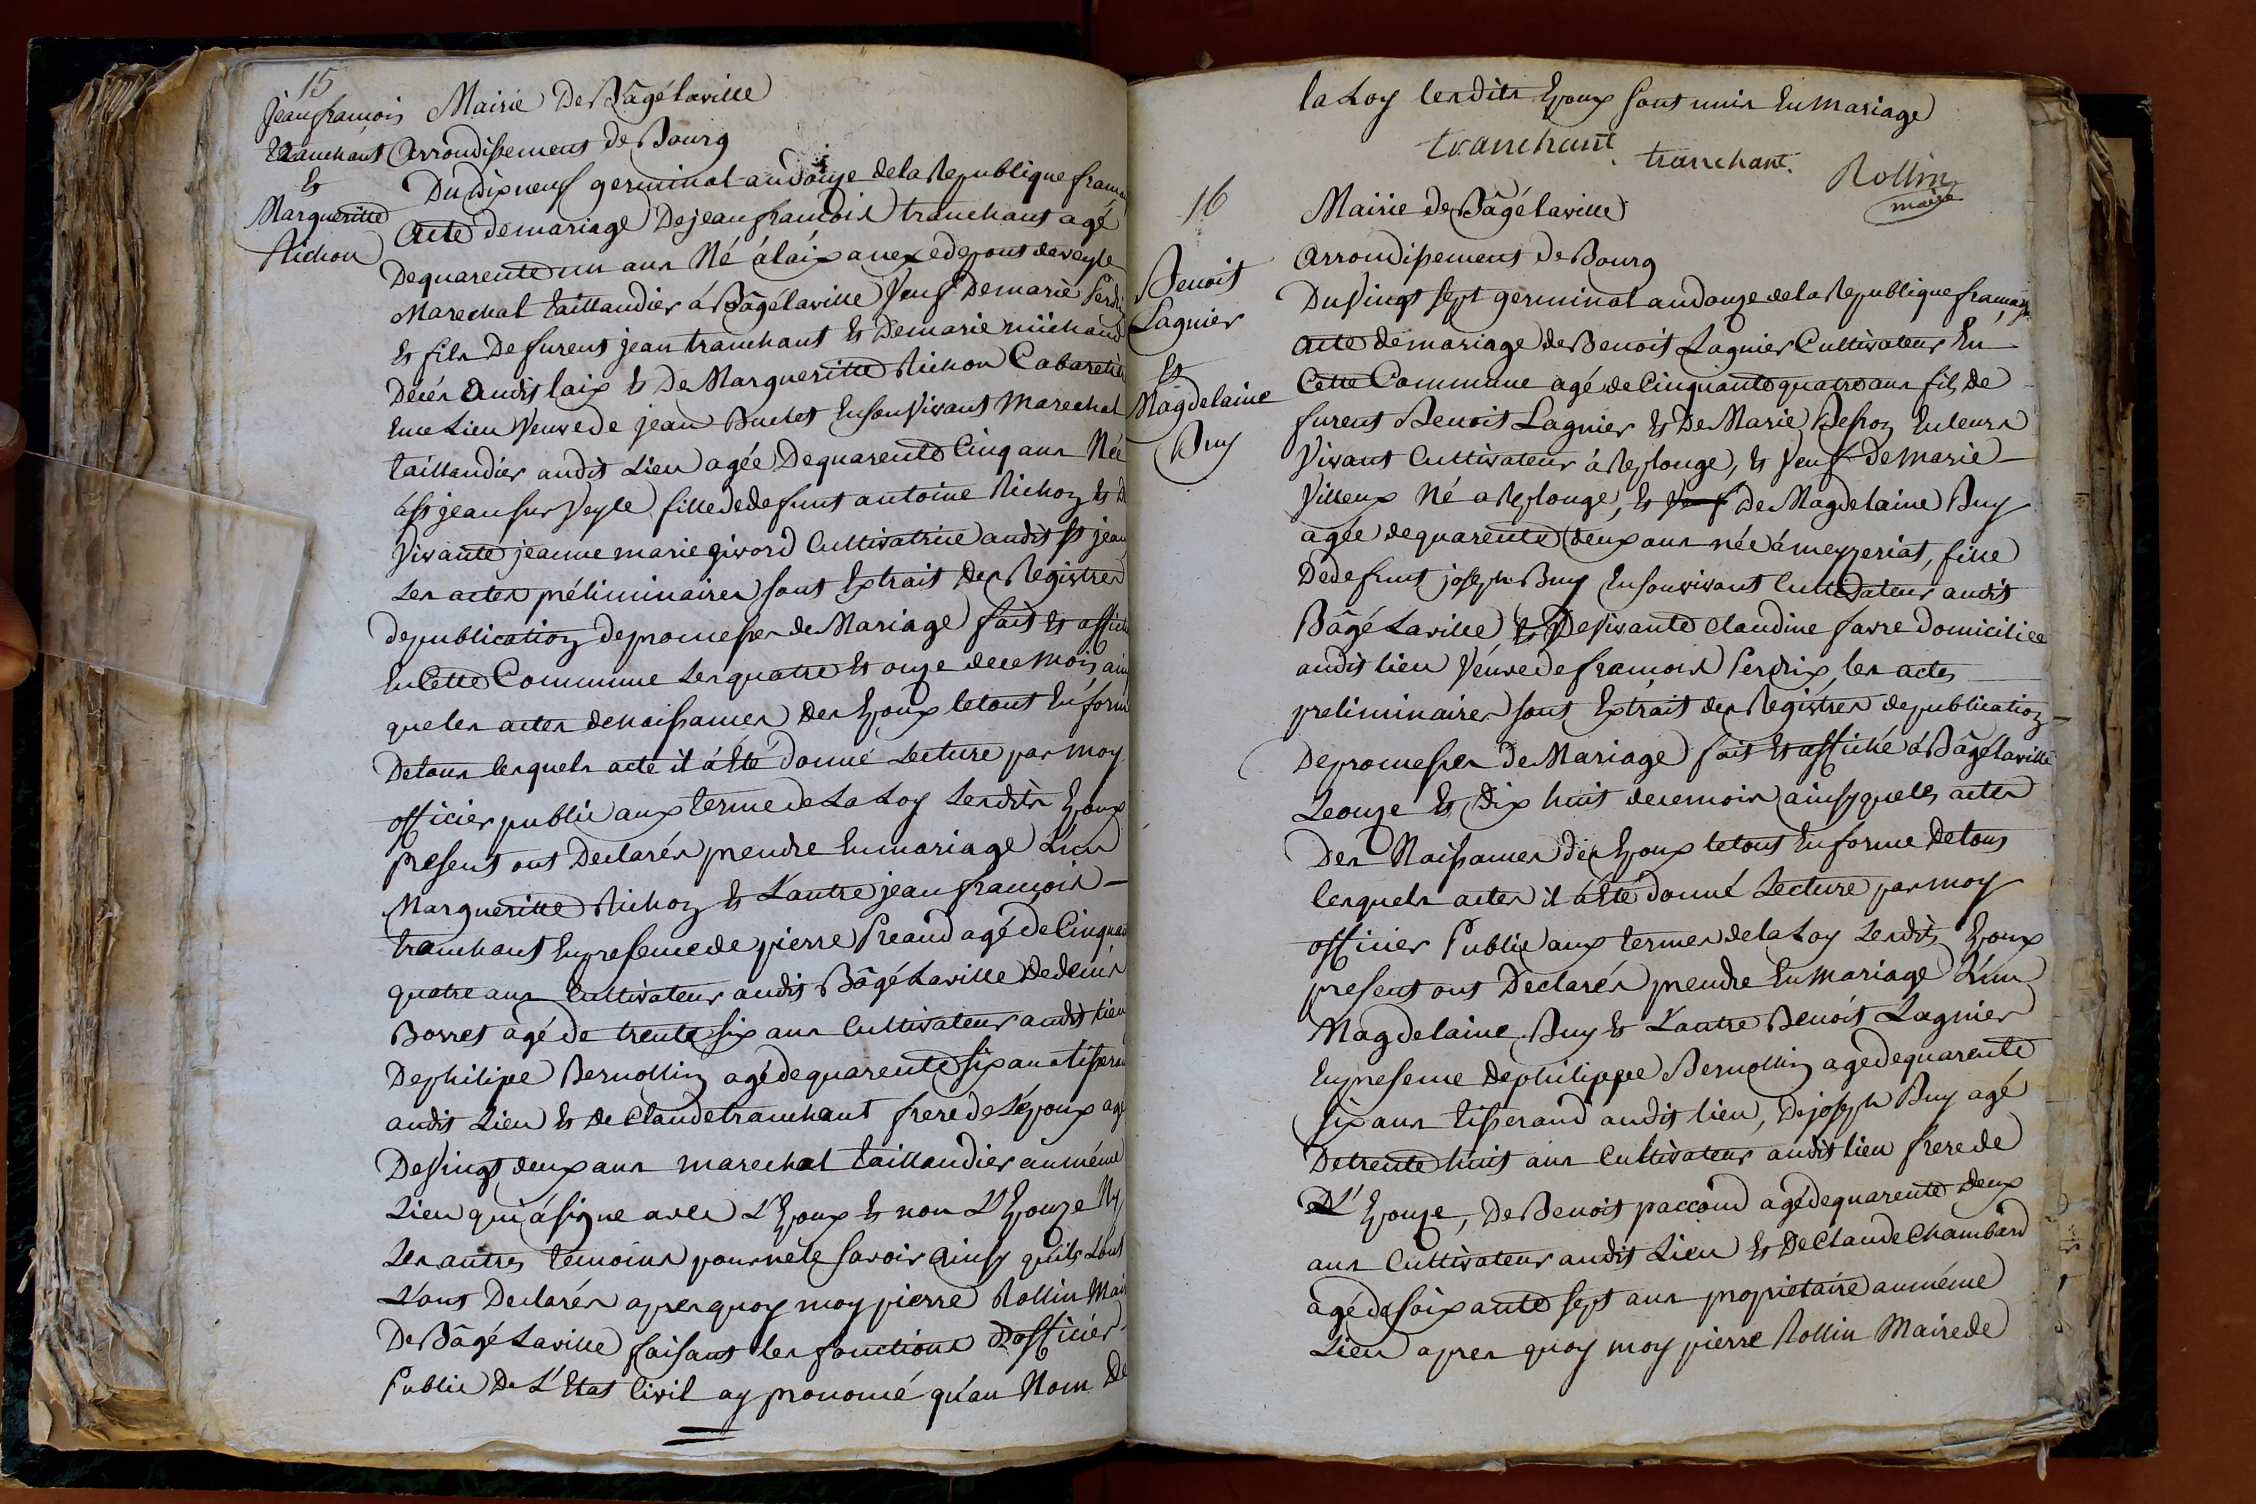 15
Jean françois
tranchant
Et
Margueritte
Richon
Mairie De Bâgélaville
Arrondissement de Bourg
Du dix neuf germinal an douze de la Republique française
Acte de mariage De jean francois tranchant agé
De quarente un ans Né á laix anexe de pont de veyle
Marechal taillandier á Bâgélaville Veuf De marie Perdrix
Et fils De furent jean tranchant Et De marie michaud
Décés audit laix Et De Margueritte Richon Cabaretière
En ce Lieu Veuve de jean Buchet En son Vivant Marechal
taillandier audit Lieu agée De quarente Cinq ans Née
á st jean sur Veyle fille de defunt antoine Richon Et De
Vivante jeanne marie givord Cultivatrice audit st jean
Les actes préliminaires sont Extrait Des Registres
de publication de promesses de Mariage fait Et affiché
En Cette Commune Les quatre Et onze de ce mois ainsi
que les actes de naissances Des Epoux le tout En forme
De tous lesquels acte il á Eté donné Lecture par moy
officier public aux terme de La Loy Lesdits Epoux
present ont Declarés prendre En mariage L'un
Margueritte Richon Et L'autre jean françois
tranchant En presence de pierre Preaud agé de Cinquante
quatre ans Cultivateur audit Bâgé Laville De denis
Borret agé de trente six ans Cultivateur audit lieu
De philipe Bernollin agé de quarente six ans tisserand
audit Lieu Et De Claude tranchant frere de L'Epoux agé
De Vingt deux ans marechal taillandier au même
Lieu qui á signe avec L'Epoux Et non L'Epouze Ny
Les autres temoins pour ne le savoir Ainsy qu'ils L'ont
L'ont Declarés apres quoy moy pierre Rollin Maire
De Bâgé Laville faisant les fonctions D'officier
Public De L'Etat Civil ay prononcé qu'au Nom De
la Loy lesdits Epoux sont unis En mariage
tranchant tranchant. Rollin
maire
16
Benoit
Lagnier
Et
Magdelaine
Buy
Mairie de Bâgélaville
Arrondissement de Bourg
Du Vingt sept germinal an douze de la Republique française
Acte de mariage de Benoit Lagnier Cultivateur En
Cette Commune agé de Cinquante quatre ans fils De
furent Benoit Lagnier Et De Marie Desroz En leurs
Vivant Cultivateur á Replonge, Et Veuf de marie
Villeux Né a Replonge, Et Veuf De Magdelaine Buy
agée de quarente deux ans née á meyzeriat, fille
De defunt joseph Buy En son vivant Cultivateur audit
Bâgé Laville Et De Vivante Claudine favre Domiciliée
audit lieu Véuve de francois Perdrix, les actes
preliminaires sont Extrait des Registres de publication
De promesses de Mariage fait Et affiché á Bâgélaville
Le onze Et Dix huit de ce mois ainsy que les actes
Des Naissances des Epoux le tout En forme De tous
lesquels actes il á Eté donné Lecture par moy
officier Public aux termes de la Loy Lesdits Epoux
present ont Declarés prendre En mariage L'un
Magdelaine Buy Et L'autre Benoit Lagnier
En presence De philippe Bernollin agé de quarente
six ans tisserand audit lieu, De joseph Buy agé
De trente huit ans Cultivateur audit lieu frere de
L' Epouze, De Benoit paccoud agé de quarente deux
ans Cultivateur audit Lieu Et De Claude Chambard
agé de soixante sept ans proprietaire au même
Lieu apres quoy moy pierre Rollin Maire de